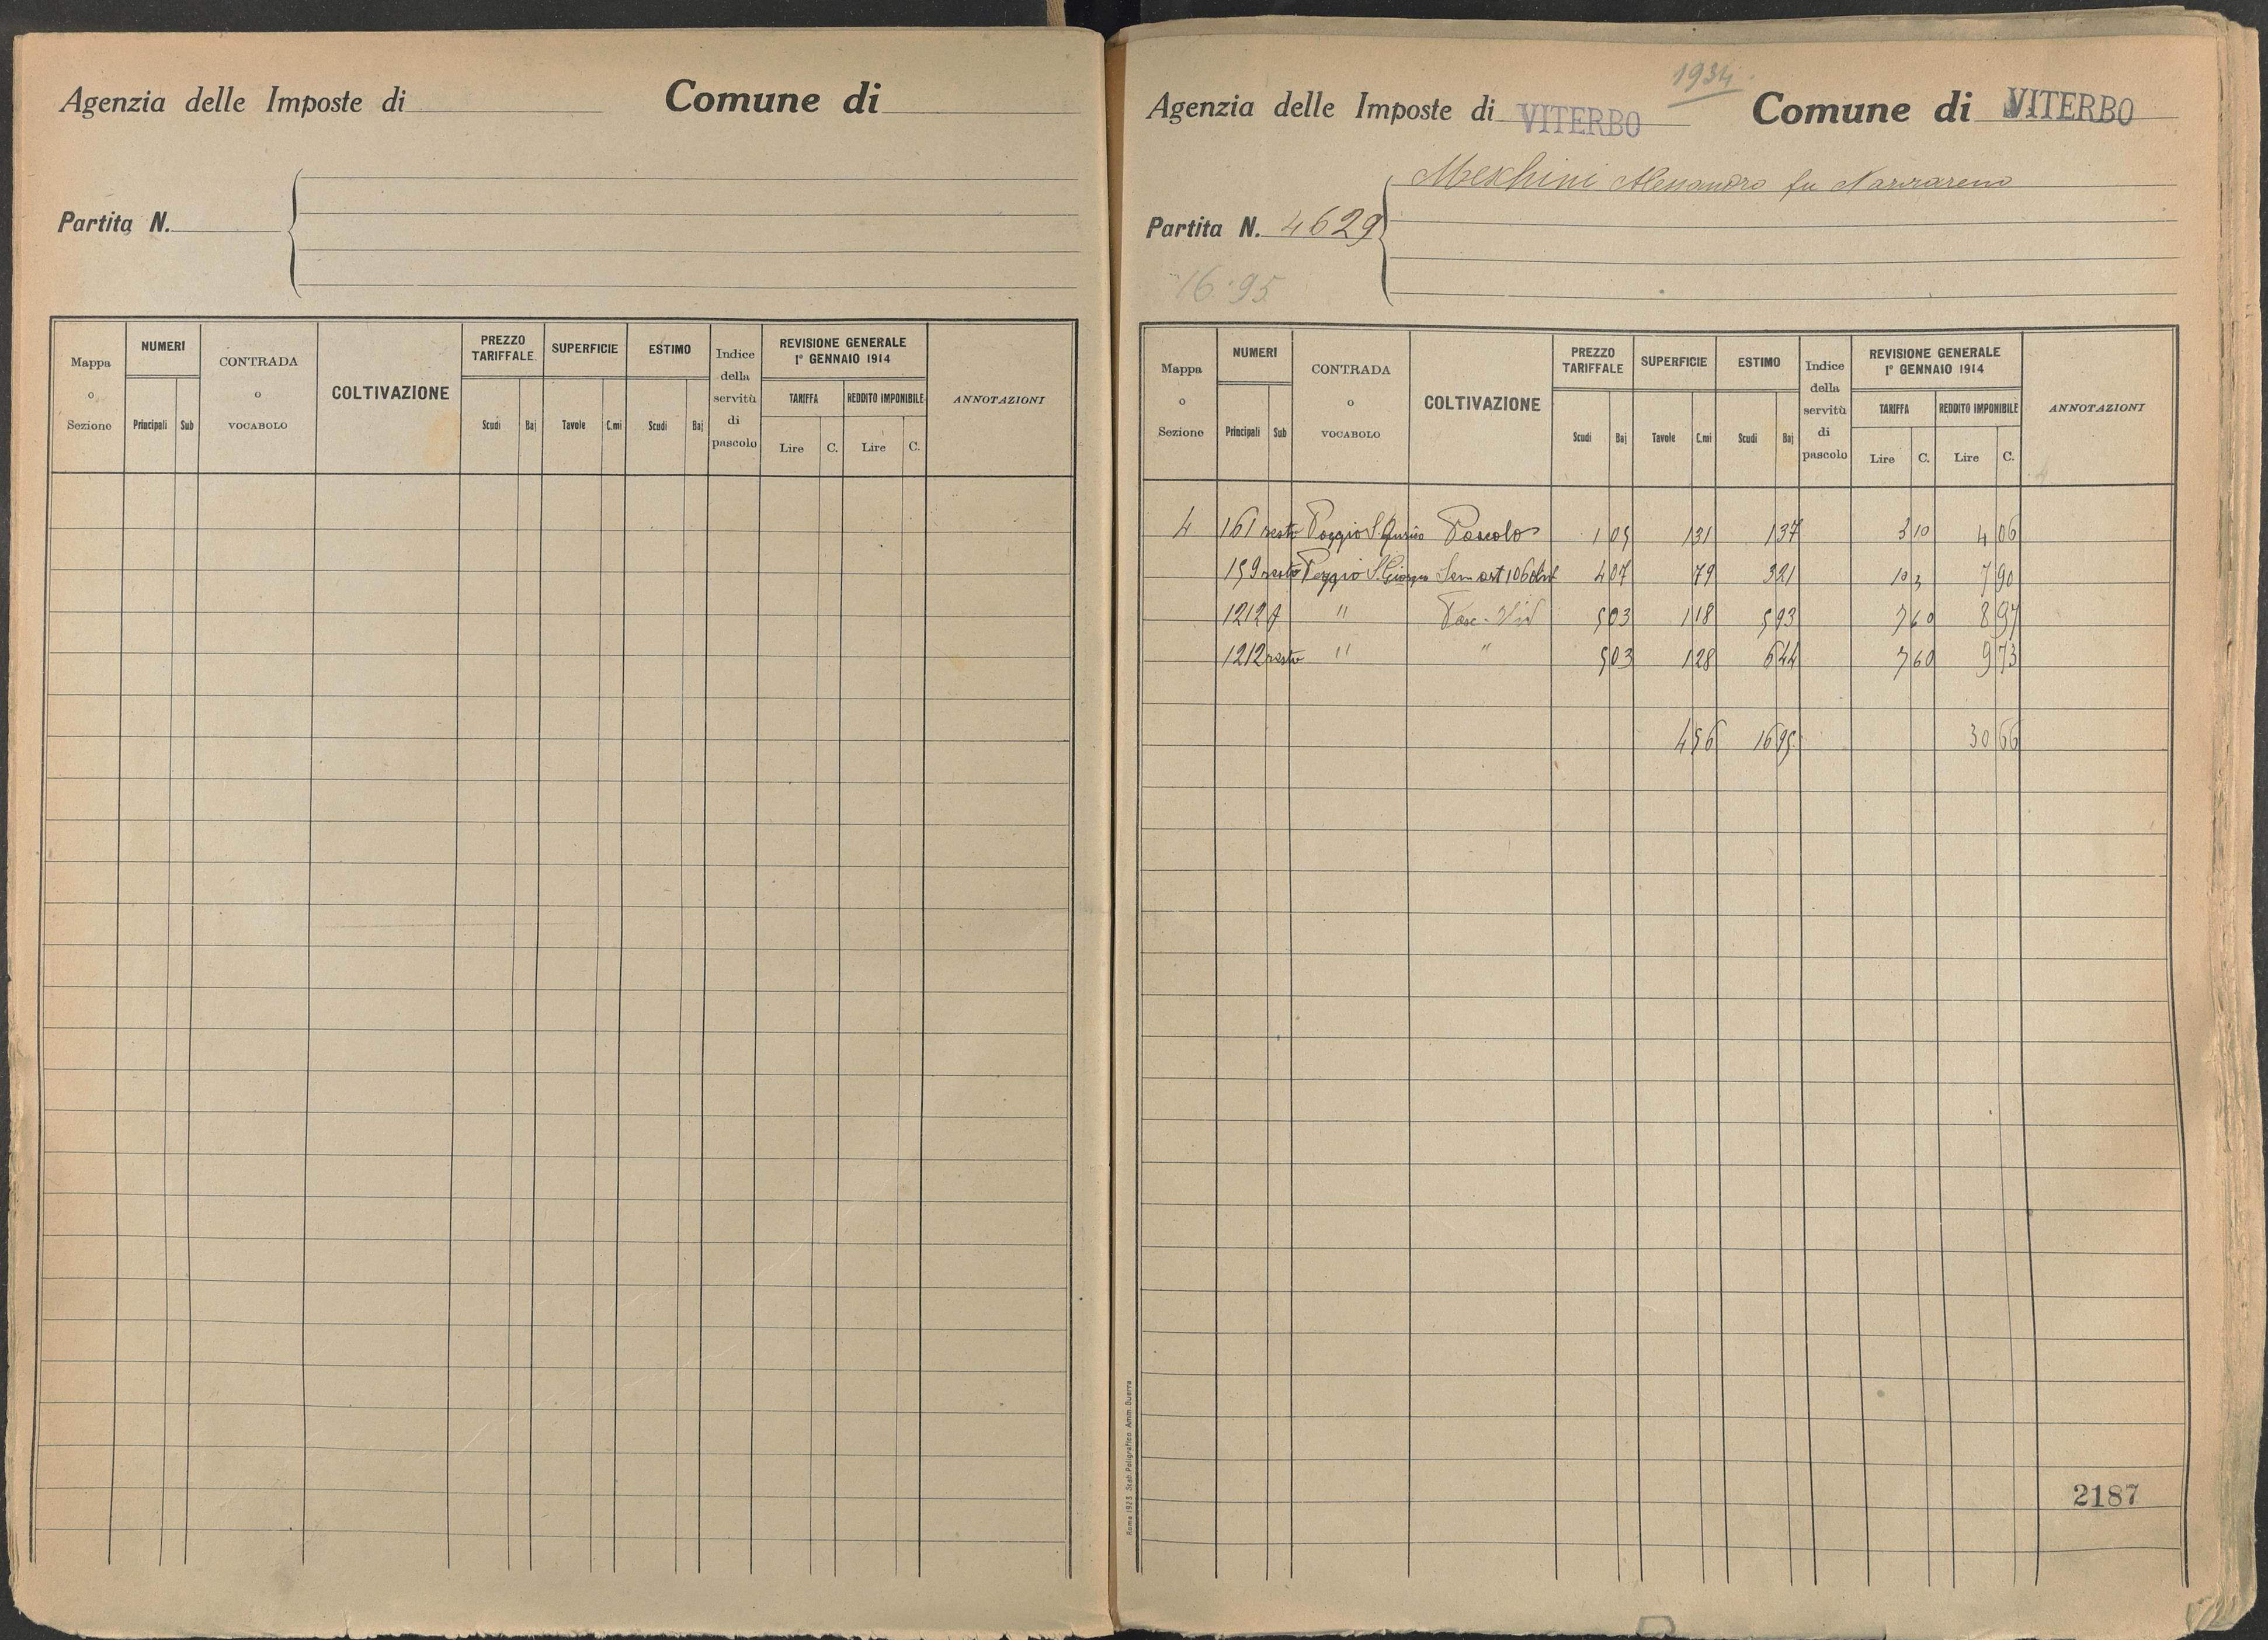 Agenzia delle Imposte di
Comune di
Partita N.
Mappa o Sezione
NUMERI
Principali
Sub
CONTRADA o VOCABOLO
COLTIVAZIONE
PREZZO TARIFFALE
Scudi
Baj
SUPERFICIE
Tavole
C.mi
ESTIMO
Scudi
Baj
Indice della servitù di pascolo
REVISIONE GENERALE
1º GENNAIO 1914
TARIFFA
Lire
C.
REDDITO IMPONIBILE
Lire
C.
ANNOTAZIONI
1934
Agenzia delle Imposte di VITERBO
Comune di VITERBO
Meschini Alessandro fu Nazzareno
Partita N. 4629
16.95
Mappa o Sezione
NUMERI
Principali
Sub
CONTRADA o VOCABOLO
COLTIVAZIONE
PREZZO TARIFFALE
Scudi
Baj
SUPERFICIE
Tavole
C.mi
ESTIMO
Scudi
Baj
Indice della servitù di pascolo
REVISIONE GENERALE
1º GENNAIO 1914
TARIFFA
Lire
C.
REDDITO IMPONIBILE
Lire
C.
ANNOTAZIONI
4 161 resto Poggio S. Pascolo 1 05 1 31 1 37 3 10 4 06
159 resto Poggio S. Giorgio Sem 4 07 79 3 21 10 7 90
1212 " Pasc. 5 03 1 18 5 93 7 60 8 97
1212 resto " " 5 03 1 28 6 44 7 60 9 73
4 56 16 95 30 66
Roma 1923 Stab. Poligrafico Amm. Guerra
2187